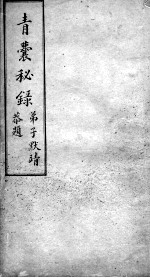 青囊秘錄
弟子狄靖
恭題